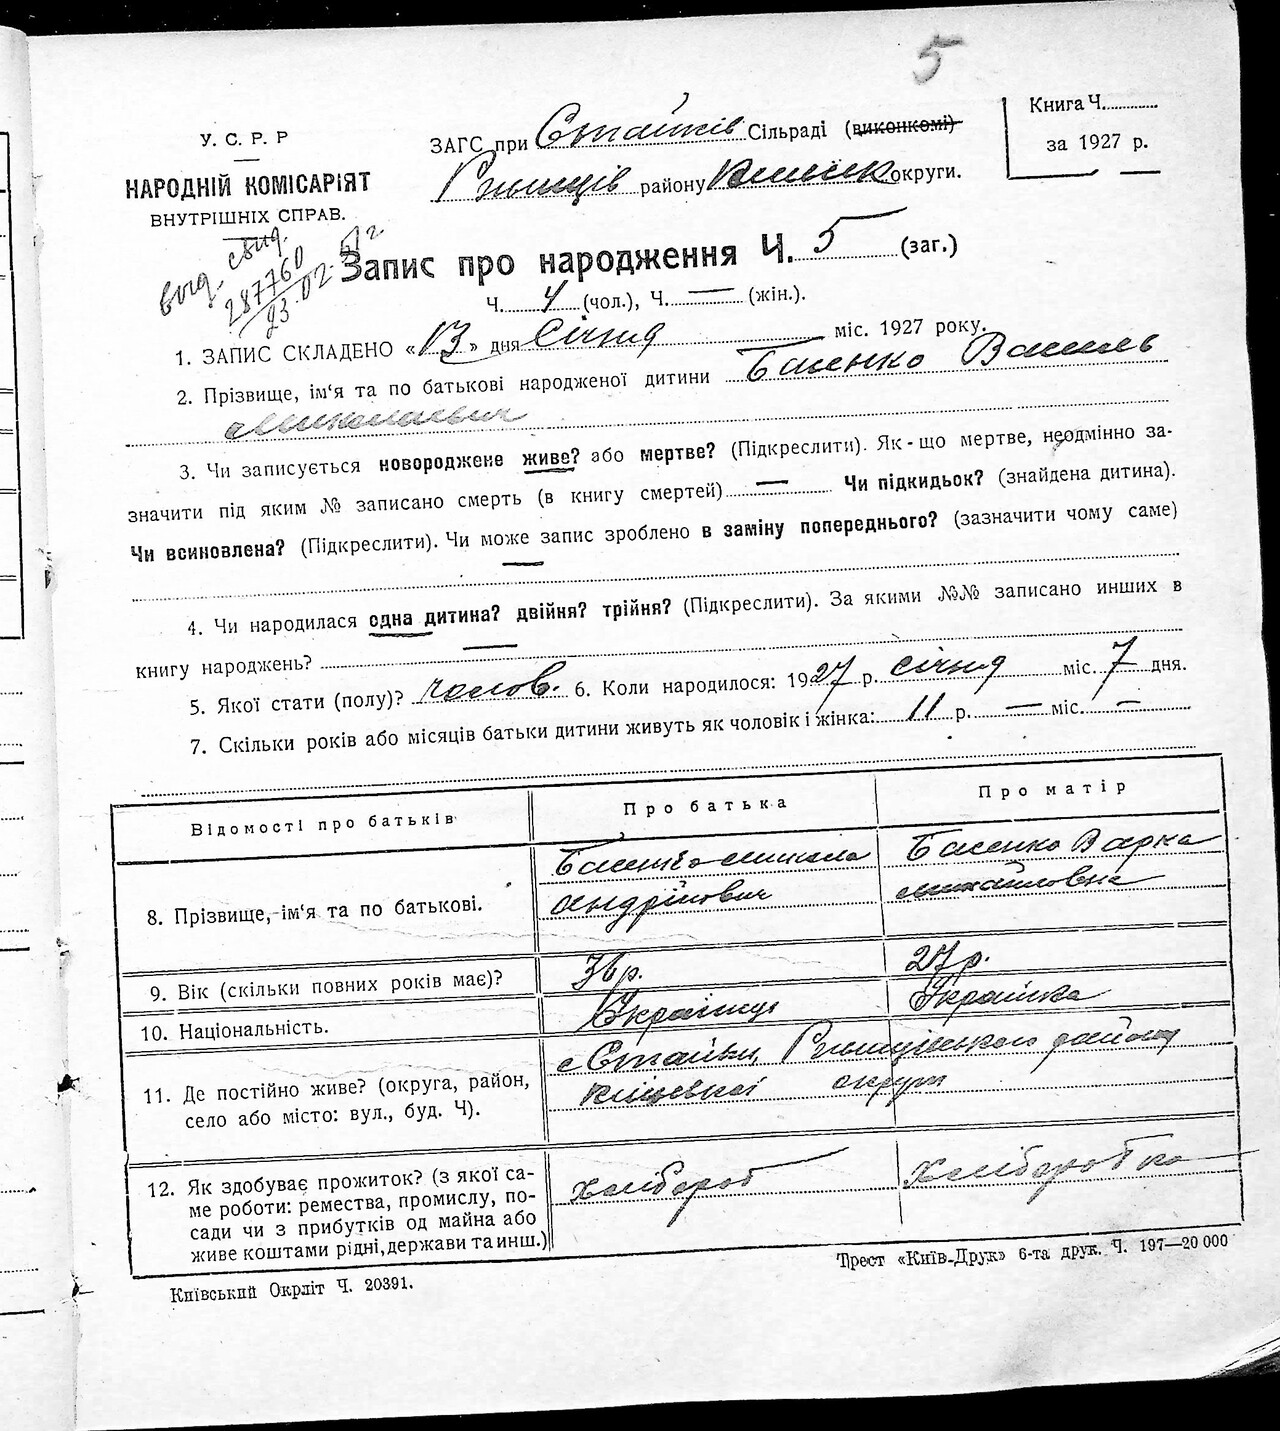 5
У. С. Р. Р
НАРОДНІЙ КОМІСАРІЯТ
ВНУТРІШНІХ СПРАВ.
ЗАГС при Стайків Сільраді (виконкомі)
Ржищів району Київськ округи.
Книга Ч.
за 1927 р.
вид. свид.
287760
23.02.51 г
Запис про народження Ч. 5 (заг.)
Ч. 4 (чол.), Ч. — (жін.).
1. ЗАПИС СКЛАДЕНО «13» дня січня міс. 1927 року.
2. Прізвище, ім‘я та по батькові народженої дитини Басенко Василь
Миколаевич
3. Чи записується новороджене живе? або мертве? (Підкреслити). Як-що мертве, неодмінно за-
значити під яким № записано смерть (в книгу смертей) — Чи підкидьок? (знайдена дитина).
Чи всиновлена? (Підкреслити). Чи може запис зроблено в заміну попереднього? (зазначити чому саме)
—
4. Чи народилася одна дитина? двійня? трійня? (Підкреслити). За якими №№ записано инших в
книгу народжень? —
5. Якої стати (полу)? чолов. 6. Коли народилося: 1927 р. січня міс. 7 дня.
7. Скільки років або місяців батьки дитини живуть як чоловік і жінка: 11 р. — міс. —
Відомості про батьків
Про батька
Про матір
8. Прізвище, ім‘я та по батькові.
Басенко Микола
Андрійович
Басенко Варка
Михайловна
9. Вік (скільки повних років має)?
36 р.
27 р.
10. Національність.
Українець
Українка
11. Де постійно живе? (округа, район,
село або місто: вул., буд. Ч).
с Стайки, Ржищівського району
Київської округи
12. Як здобуває прожиток? (з якої са-
ме роботи: ремества, промислу, по-
сади чи з прибутків од майна або
живе коштами рідні, держави та инш.)
хлібороб
хліборобка
Київський Окрліт Ч. 20391.
Трест «Київ-Друк» 6-та друк. Ч. 197—20 000